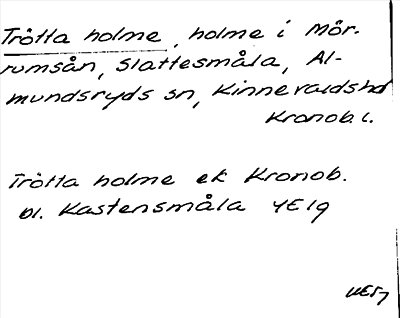 Tråtta holme, holme i Mör-
rumsån, Slattesmåla, Al-
mundsryds sn, Kinnevaldshd
Kronob. l.
Tråtta holme ek Kronob.
bl. Kastensmåla 4E1g